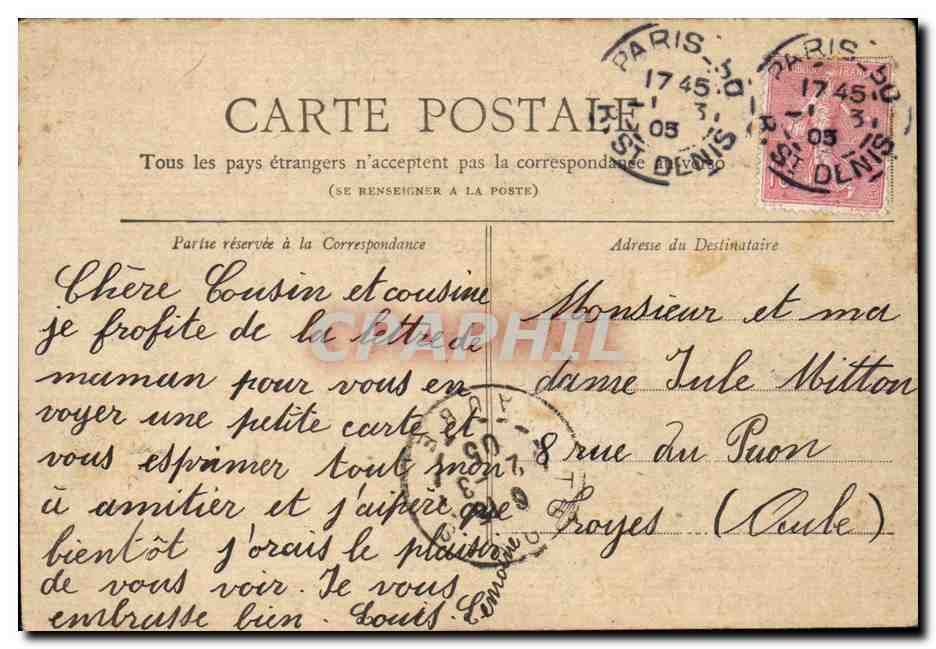 CARTE POSTALE
Tous les pays étrangers n'acceptent pas la correspondance au verso
(SE RENSEIGNER A LA POSTE)
PARIS - 50
17 45
1 3
05
R. ST DENIS
PARIS - 50
17 45
1 3
05
R. ST DENIS
10
Partie réservée à la Correspondance
Chère Cousin et cousine
je profite de la lettre de
maman pour vous en
voyer une petite carte et
vous esprimer tout mon
à amitier et j'aipere que
bientôt j'orais le plaisir
de vous voir. Je vous
embrasse bien. Louis. Lemoine
Adresse du Destinataire
Monsieur et ma
dame Jule Mitton
8 rue du Paon
Troyes (Aube)
CPAPHIL